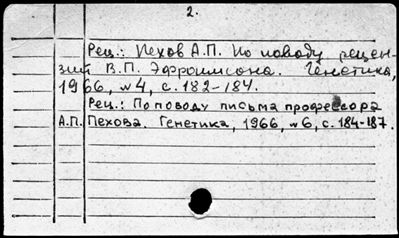 2.
Рец.: Пехов А.П. По поводу рецен-
зии В.П. Эфроимсона. Генетика,
1966, №4, с. 182-184.
Рец.: По поводу письма профессора
А.П. Пехова. Генетика, 1966, №6, с. 184-187.